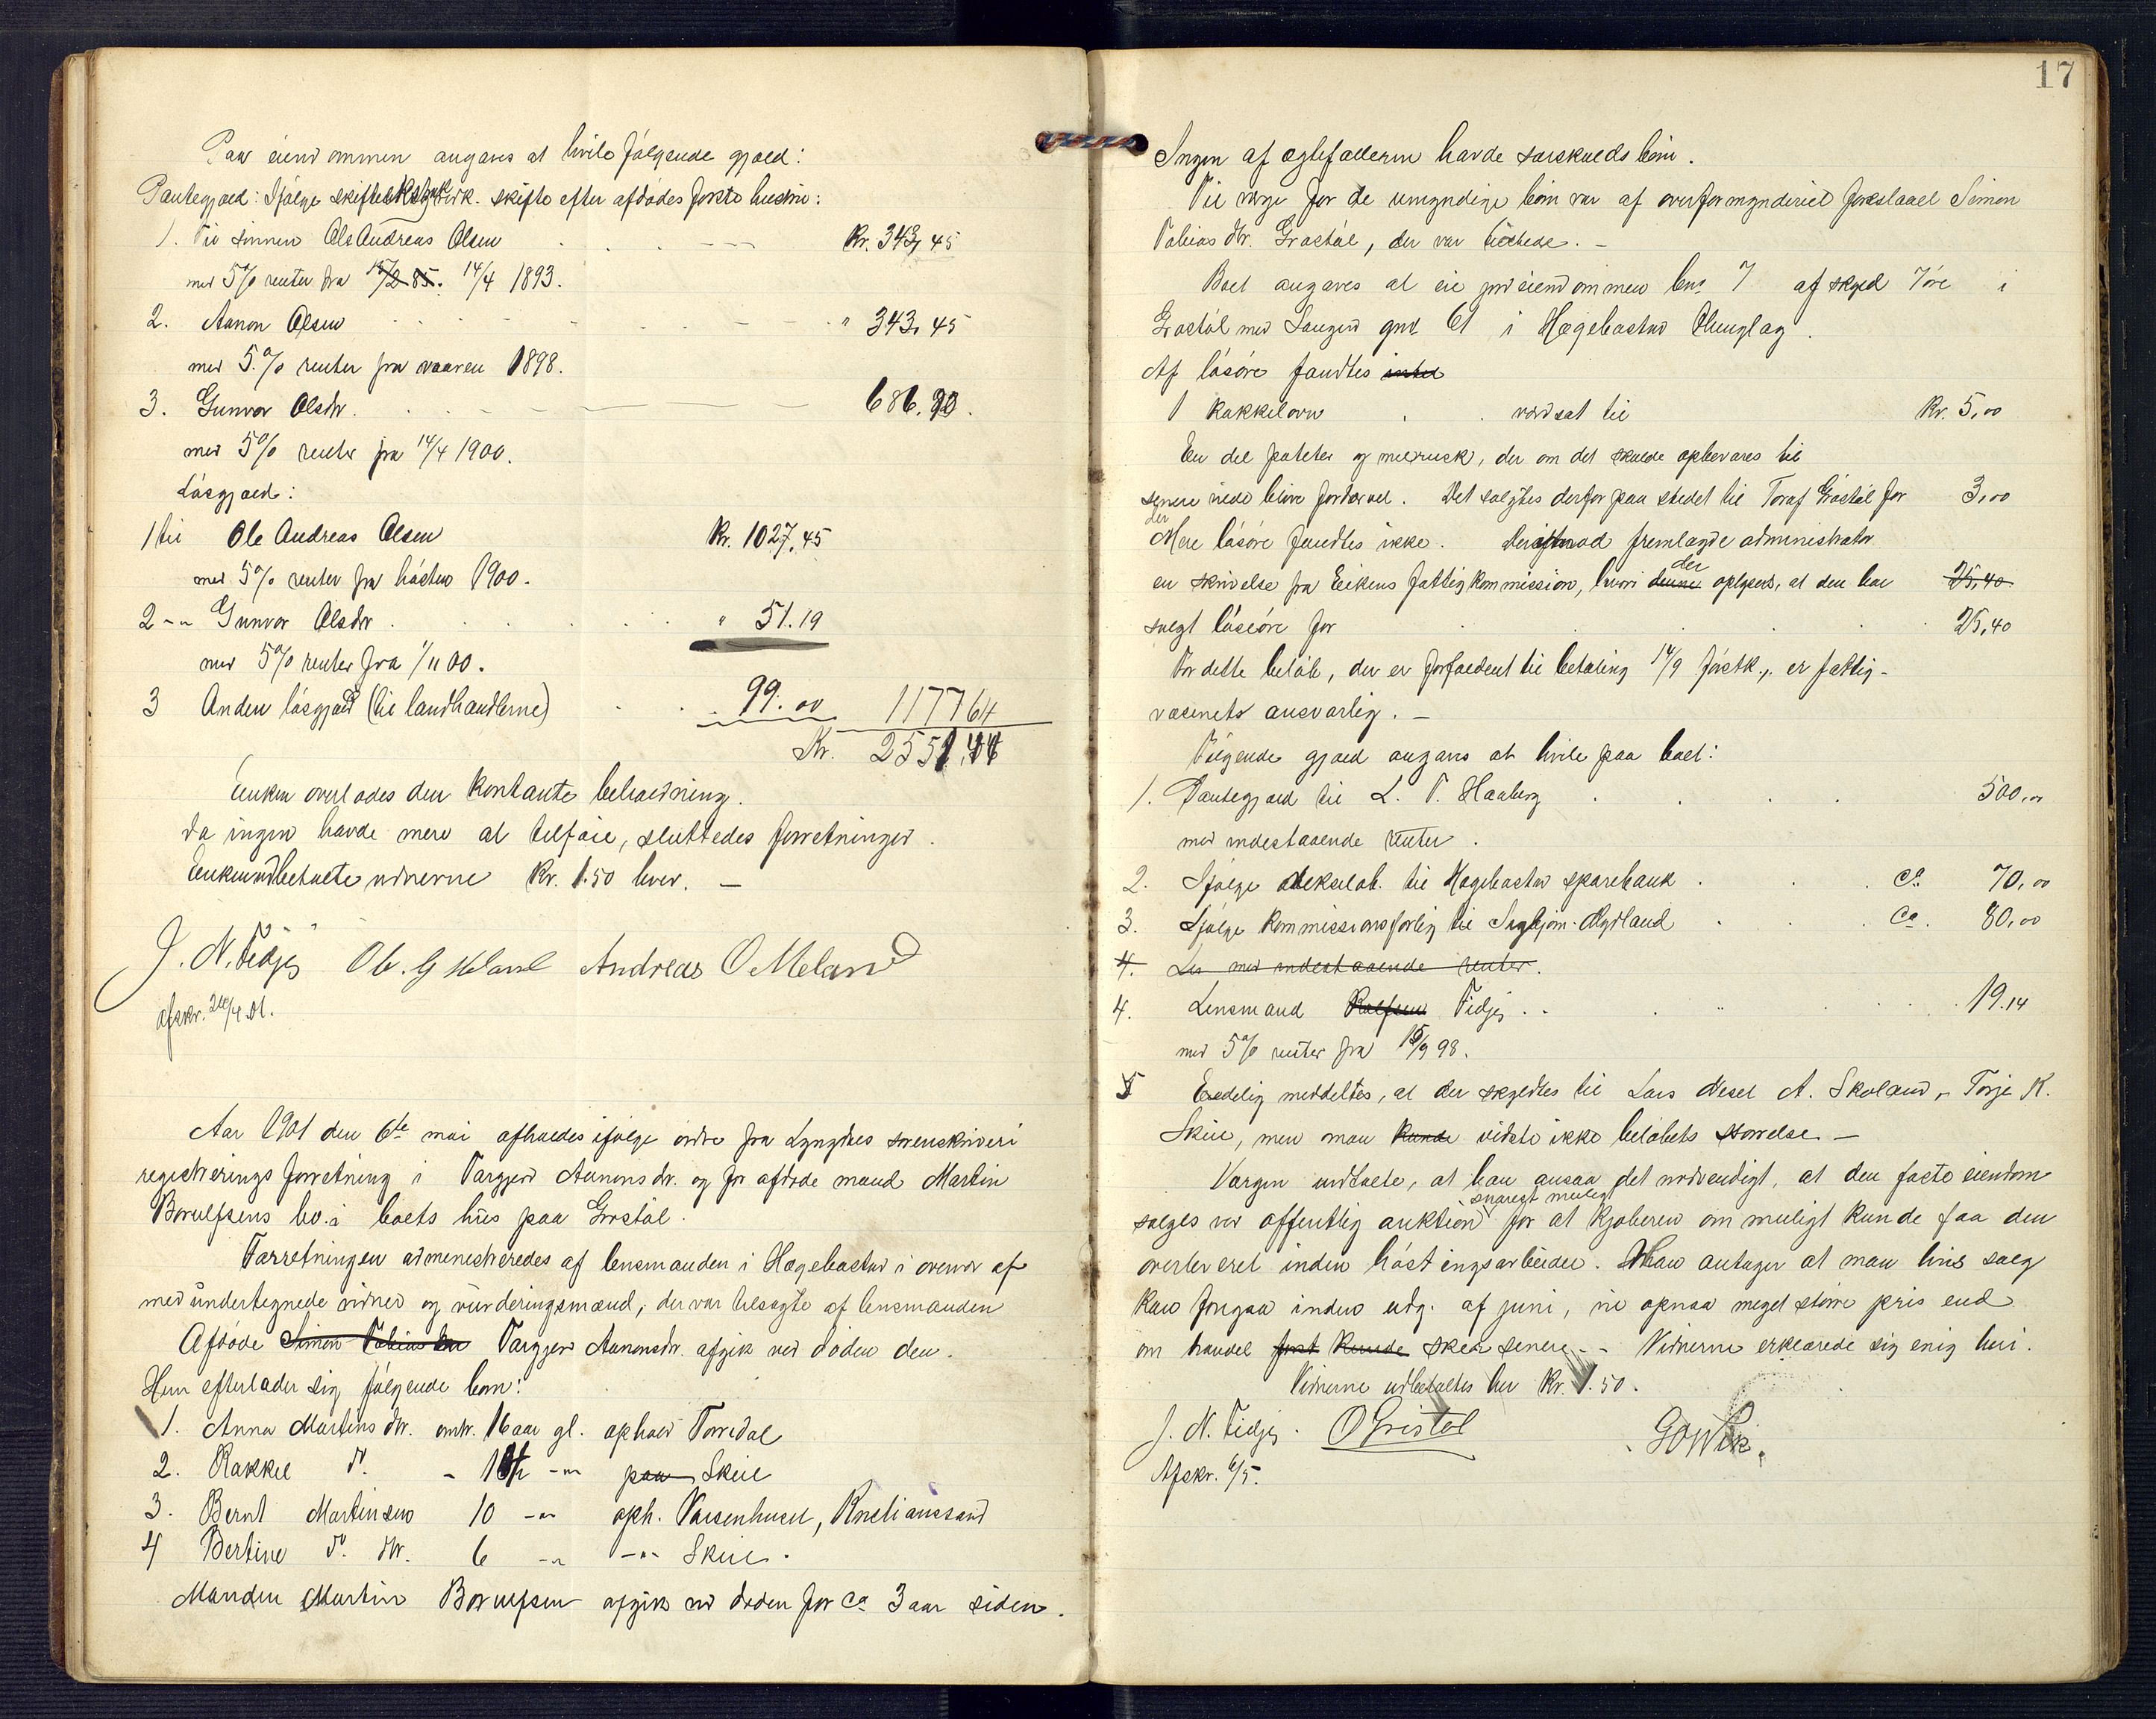 Paa eiendommen angaves at hvile følgende gjæld:
Pantegjæld: Ifølge skifteekstrakt. skifte efter afdødes første hustru:
1. Til sønnen Ole Andreas Olsen Kr. 343,45
med 5% renter fra 14/4 1893.
2. Aanon Olsen " 343,45
med 5% renter fra vaaren 1898.
3. Gunvor Olsdtr. 686,90.
med 5% renter fra 14/4 1900.
Løsgjæld:
1 til Ole Andreas Olsen Kr. 1027,45
med 5% renter fra høsten 1900.
2 -"- Gunvor Olsdtr " 51.19
med 5% renter fra 1/11 00.
3 Anden løsgjæld (til landhandlerne) 99.00 1177 64
Kr. 2551,44
Enken overlodes den kontante beholdning.
Da ingen havde mere at tilføie, sluttedes forretningen.
Enken udbetalte vidnerne Kr. 1.50 hver. —
J. N. Tidjes Ole. G Meland Andreas O Meland
Afskr. 20/4 01.
Aar 1901 den 6te mai afholdes ifølge ordre fra Lyngdals sorenskriveri
registreringsforretning i Targjerd Aanonsdr. og for afdøde mand Martin
Borulfsens bo i boets hus paa Grøstøl.
Forretningen administreredes af lensmanden i Hægebostad i overvær af
med undertegnede vidner og vurderingsmænd, der var tilsagte af lensmanden
Afdøde Simon Tobias Targjerd Aanonsdr. afgik ved døden den.
Hun efterlader sig følgende børn:
1. Anna Martinsdtr. omtr. 16 aar gl. ophold Torridal
2. Rakkel do. - -"- paa Skeie
3. Bernt Martinsen 10 -"- oph. Vaisenhuset, Kristianssand
4 Bertine do. dtr. 6 -"- -"- Skeie.
Manden Martin Borulfsen afgik ved døden for ca 3 aar siden.
17
Ingen af ægtefællerne havde særskuldsbørn.
Til værge for de umyndige børn var af overformynderiet foreslaaet Simon
Tobias Grøstøl, der var tilstede. —
Boet angaves at eie jordeiendommen bno 7 af skyld 7 øre i
Grøstøl med gno 61 i Hægebostad thinglag.
Af løsøre fandtes intet
1 kakkelovn værdsat til Kr. 5,00
En del poteter og, der om det skulde opbevares til
senere vilde blive fordærvet. Det solgtes derfor paa stedet til Toraf Grøstøl for 3,00
Mere løsøre fandtes ikke. Derefter fremlagde administrator
en skrivelse fra Eikens fattigkommission, hvori denne der oplyses, at den har 25,40
solgt løsøre for 25,40
For dette beløb, der er forfaldent til betaling 14/9 førstk., er fattig-
væsenets ansvarlig. —
Følgende gjæld angaves at hvile paa boet:
1. Pantegjæld til L. T. Haaberg 500,00
med indestaaende renter.
2. Ifølge vekselob. til Hægebostad sparebank ca. 70,00
3. Ifølge kommissionsforlig til Sigbjørn Rydland Ca. 80,00
4. med indestaaende renter.
4. Lensmand Rolfsen Tidjes 19.14
med 5% renter fra 15/9 98.
5 Endelig meddeltes, at der skyldtes til Lars A. Skoland, Torje K.
Skeie, men man kunde vidste ikke beløbets størrelse —
Værgen udtalte, at han ansaa det nødvendigt, at den faste eiendom
snarest muligt
sælges ved offentlig auktion for at kjøberen om muligt kunde faa den
overleveret inden høstingsarbeidet. Man antager at man hvis salg
kan foregaa inden udg. af juni, vil opnaa meget større pris end
om handel først kunde skea senere -- Vidnerne erklærede sig enig heri.
Vidnerne udbetaltes hver Kr. 1.50.
J. N. Tidjes. O Gristøl
Afskr. 6/5.